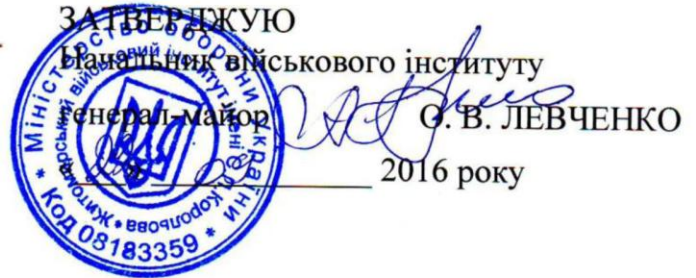 ЗАТВЕРДЖУЮ
Начальник військового інституту
генерал-майор О. В. ЛЕВЧЕНКО
2016 року
* Міністерство оборони України *
Житомирський військовий інститут імені С.П.Корольова
Код 08183359